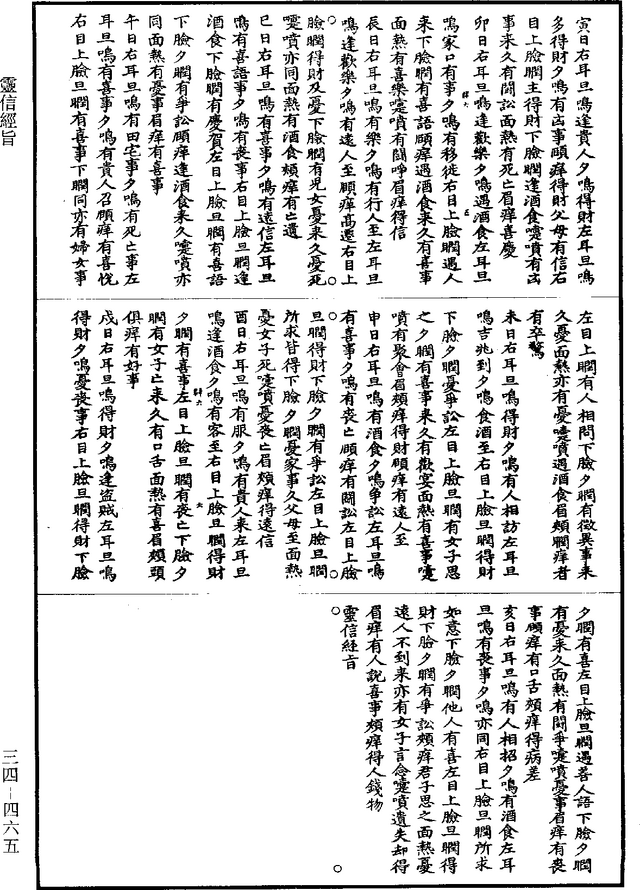 寅日右耳旦鳴逢貴人夕鳴得財左耳旦鳴
多得財夕鳴有凶事頤痒得財父母有信右
目上臉瞤主得財下臉瞤逢酒食嚏噴有凶
事來久有鬪訟面熱有死亡眉痒喜慶
卯日右耳旦鳴逢歡樂夕鳴遇酒食左耳旦
鳴家口有事夕鳴有移徙右目上臉瞤遇人
來下臉瞤有喜語頤痒遇酒食來久有喜事
面熱有喜樂嚏噴有鬪諍眉痒得信
辰日右耳旦鳴有樂夕鳴有行人至左耳旦
鳴逢歡樂夕鳴有遠人至頤痒高遷右目上
臉瞤得財及憂下臉瞤有兒女憂來久憂死
嚏噴亦同面熱有酒食頰痒有亡遺
巳日右耳旦鳴有喜事夕鳴有遠信左耳旦
鳴有喜語事夕鳴有喪事右目上臉旦瞤逢
酒食下臉瞤有慶賀左目上臉旦瞤有喜語
下臉夕瞤有爭訟頤痒逢酒食來久嚏噴亦
同面熱有憂事眉痒有喜事
午日右耳旦鳴有田宅事夕鳴有死亡事左
耳旦鳴有喜事夕鳴有貴人召頤痒有喜悅
右目上臉旦瞤有喜事下瞤同亦有婦女事
左目上瞤有人相問下臉夕瞤有徵異事來
久憂面熱亦有憂嚏噴遇酒食眉頰瞤痒者
有卒驚
未日右耳旦鳴得財夕鳴有人相訪左耳旦
鳴吉兆到夕鳴食酒至右目上臉旦瞤得財
下臉夕瞤憂爭訟左目上臉旦瞤有女子思
之夕瞤有喜事來久有歡宴面熱有喜事嚏
噴有聚會眉頰痒得財頤痒有遠人至
申日右耳旦鳴有酒食夕鳴爭訟左耳旦鳴
有喜事夕鳴有喪亡頤痒有鬪訟左目上臉
旦瞤得財下臉夕瞤有爭訟左目上臉旦瞤
所求皆得下臉夕瞤憂家事久父母至面熱
憂女子死嚏噴憂喪亡眉頰痒得遠信
酉日右耳旦鳴有服夕鳴有貴人來左耳旦
鳴逢酒食夕鳴有客至右目上臉旦瞤得財
夕瞤有喜事左目上臉旦瞤有喪亡下臉夕
瞤有女子亡來久有口舌面熱有喜眉頰頭
俱痒有好事
戌日右耳旦鳴得財夕鳴逢盜賊左耳旦鳴
得財夕鳴憂喪事右目上臉旦瞤得財下臉
夕瞤有喜左目上臉旦瞤遇善人語下臉夕瞤
有憂來久面熱有鬪爭嚏噴憂事眉痒有喪
事頤痒有口舌頰痒得病差
亥日右耳旦鳴有人相招夕鳴有酒食左耳
旦鳴有喪事夕鳴亦同右目上臉旦瞤所求
如意下臉夕瞤他人有喜左目上臉旦瞤得
財下臉夕瞤有爭訟頰痒君子思之面熱憂
遠人不到來亦有女子言念嚏噴遺失却得
眉痒有人說喜事頰痒得人錢物
靈信經旨
靈信經旨
三四－四六五